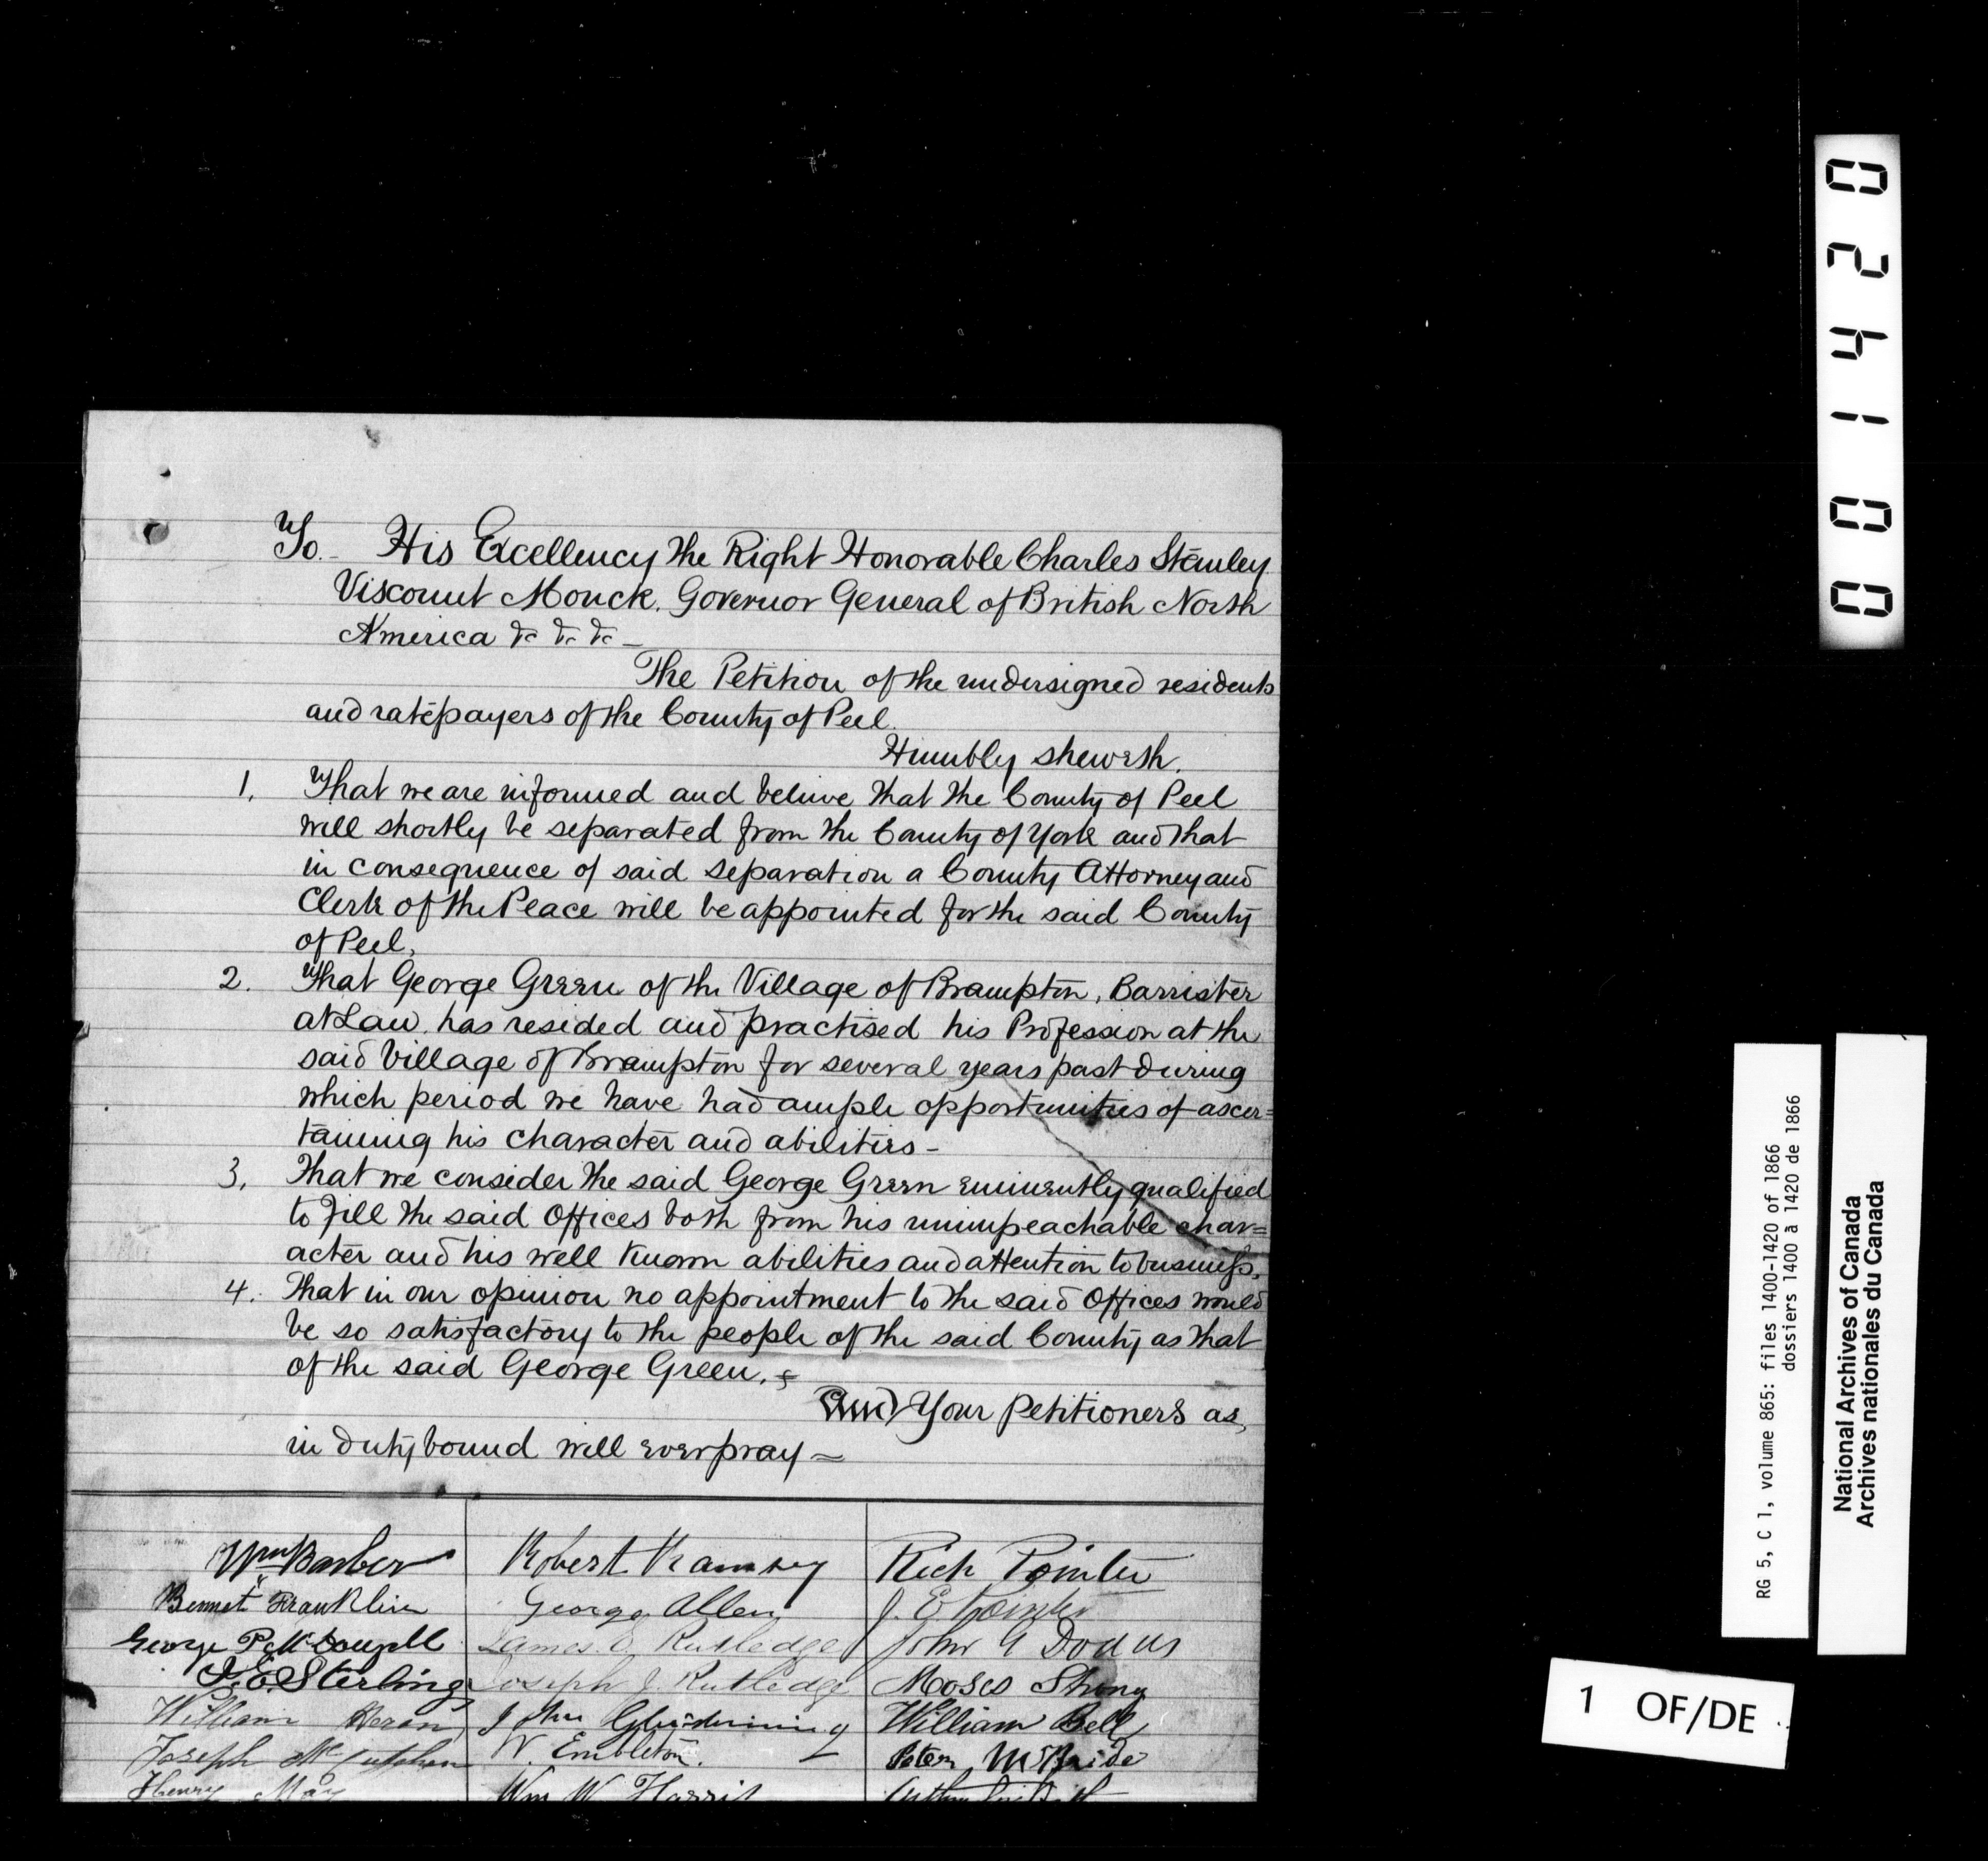 To. His Excellency the Right Honorable Charles Stanley
Viscount Monck, Governor General of British North
America &c &c &c —
The Petition of the undersigned residents
and ratepayers of the County of Peel.
Humbly sheweth.
1. That we are informed and believe that the County of Peel
will shortly be separated from the County of York and that
in consequence of said separation a County Attorney and
Clerk of the Peace will be appointed for the said County
of Peel,
2. That George Green of the Village of Brampton, Barrister
at Law, has resided and practised his Profession at the
said Village of Brampton for several years past during
which period we have had ample opportunities of ascer=
taining his character and abilities —
3. That we consider the said George Green eminently qualified
to fill the said Offices both from his unimpeachable char=
acter and his well known abilities and attention to business.
4. That in our opinion no appointment to the said Offices would
be so satisfactory to the people of the said County as that
of the said George Green.
And Your Petitioners as
in duty bound will ever pray —
Wm Barber
Bennet Franklin
George P McDougall
J. E. Sterling
William Heron
Joseph
Henry May
Robert Ramsey
George Allen
James Rutledge
Joseph J. Rutledge
John Glendinning
W. Embleton.
Wm W. Harris
Rich Pointer
J. E Pointer
John G
Moses Strong
William Bell
Peter McBride
Arthur
0 0 1 4 2 0
RG 5, C 1, volume 865: files 1400-1420 of 1866
dossiers 1400 à 1420 de 1866
National Archives of Canada
Archives nationales du Canada
1 OF/DE